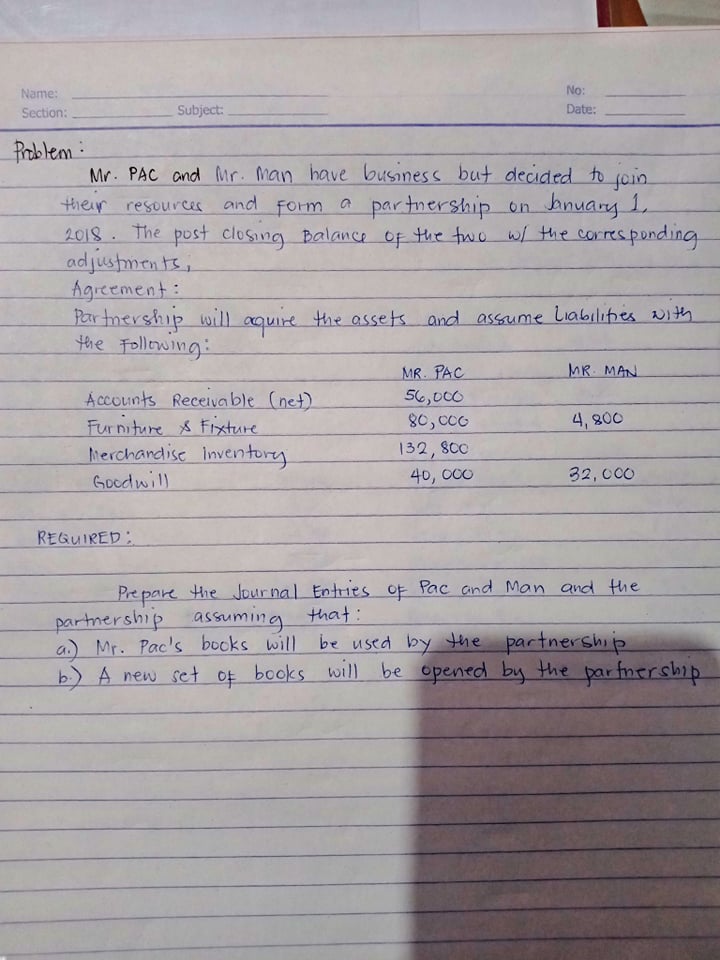 Name:
No:
Section: Subject:
Date:
Problem:
Mr. PAC and Mr. Man have business but decided to join
their resources and form a partnership on January 1,
2018. The post closing Balance of the two w/ the corresponding
adjustments;
Agreement:
Partnership will aquire the assets and assume Liabilities with
the Following:
MR. PAC MR. MAN
Accounts Receivable (net) 56,000
Furniture & Fixture 80,000 4,800
Merchandise Inventory 132,800
Goodwill 40,000 32,000
REQUIRED:
Prepare the Journal Entries of Pac and Man and the
partnership assuming that:
a.) Mr. Pac's books will be used by the partnership
b.) A new set of books will be opened by the partnership